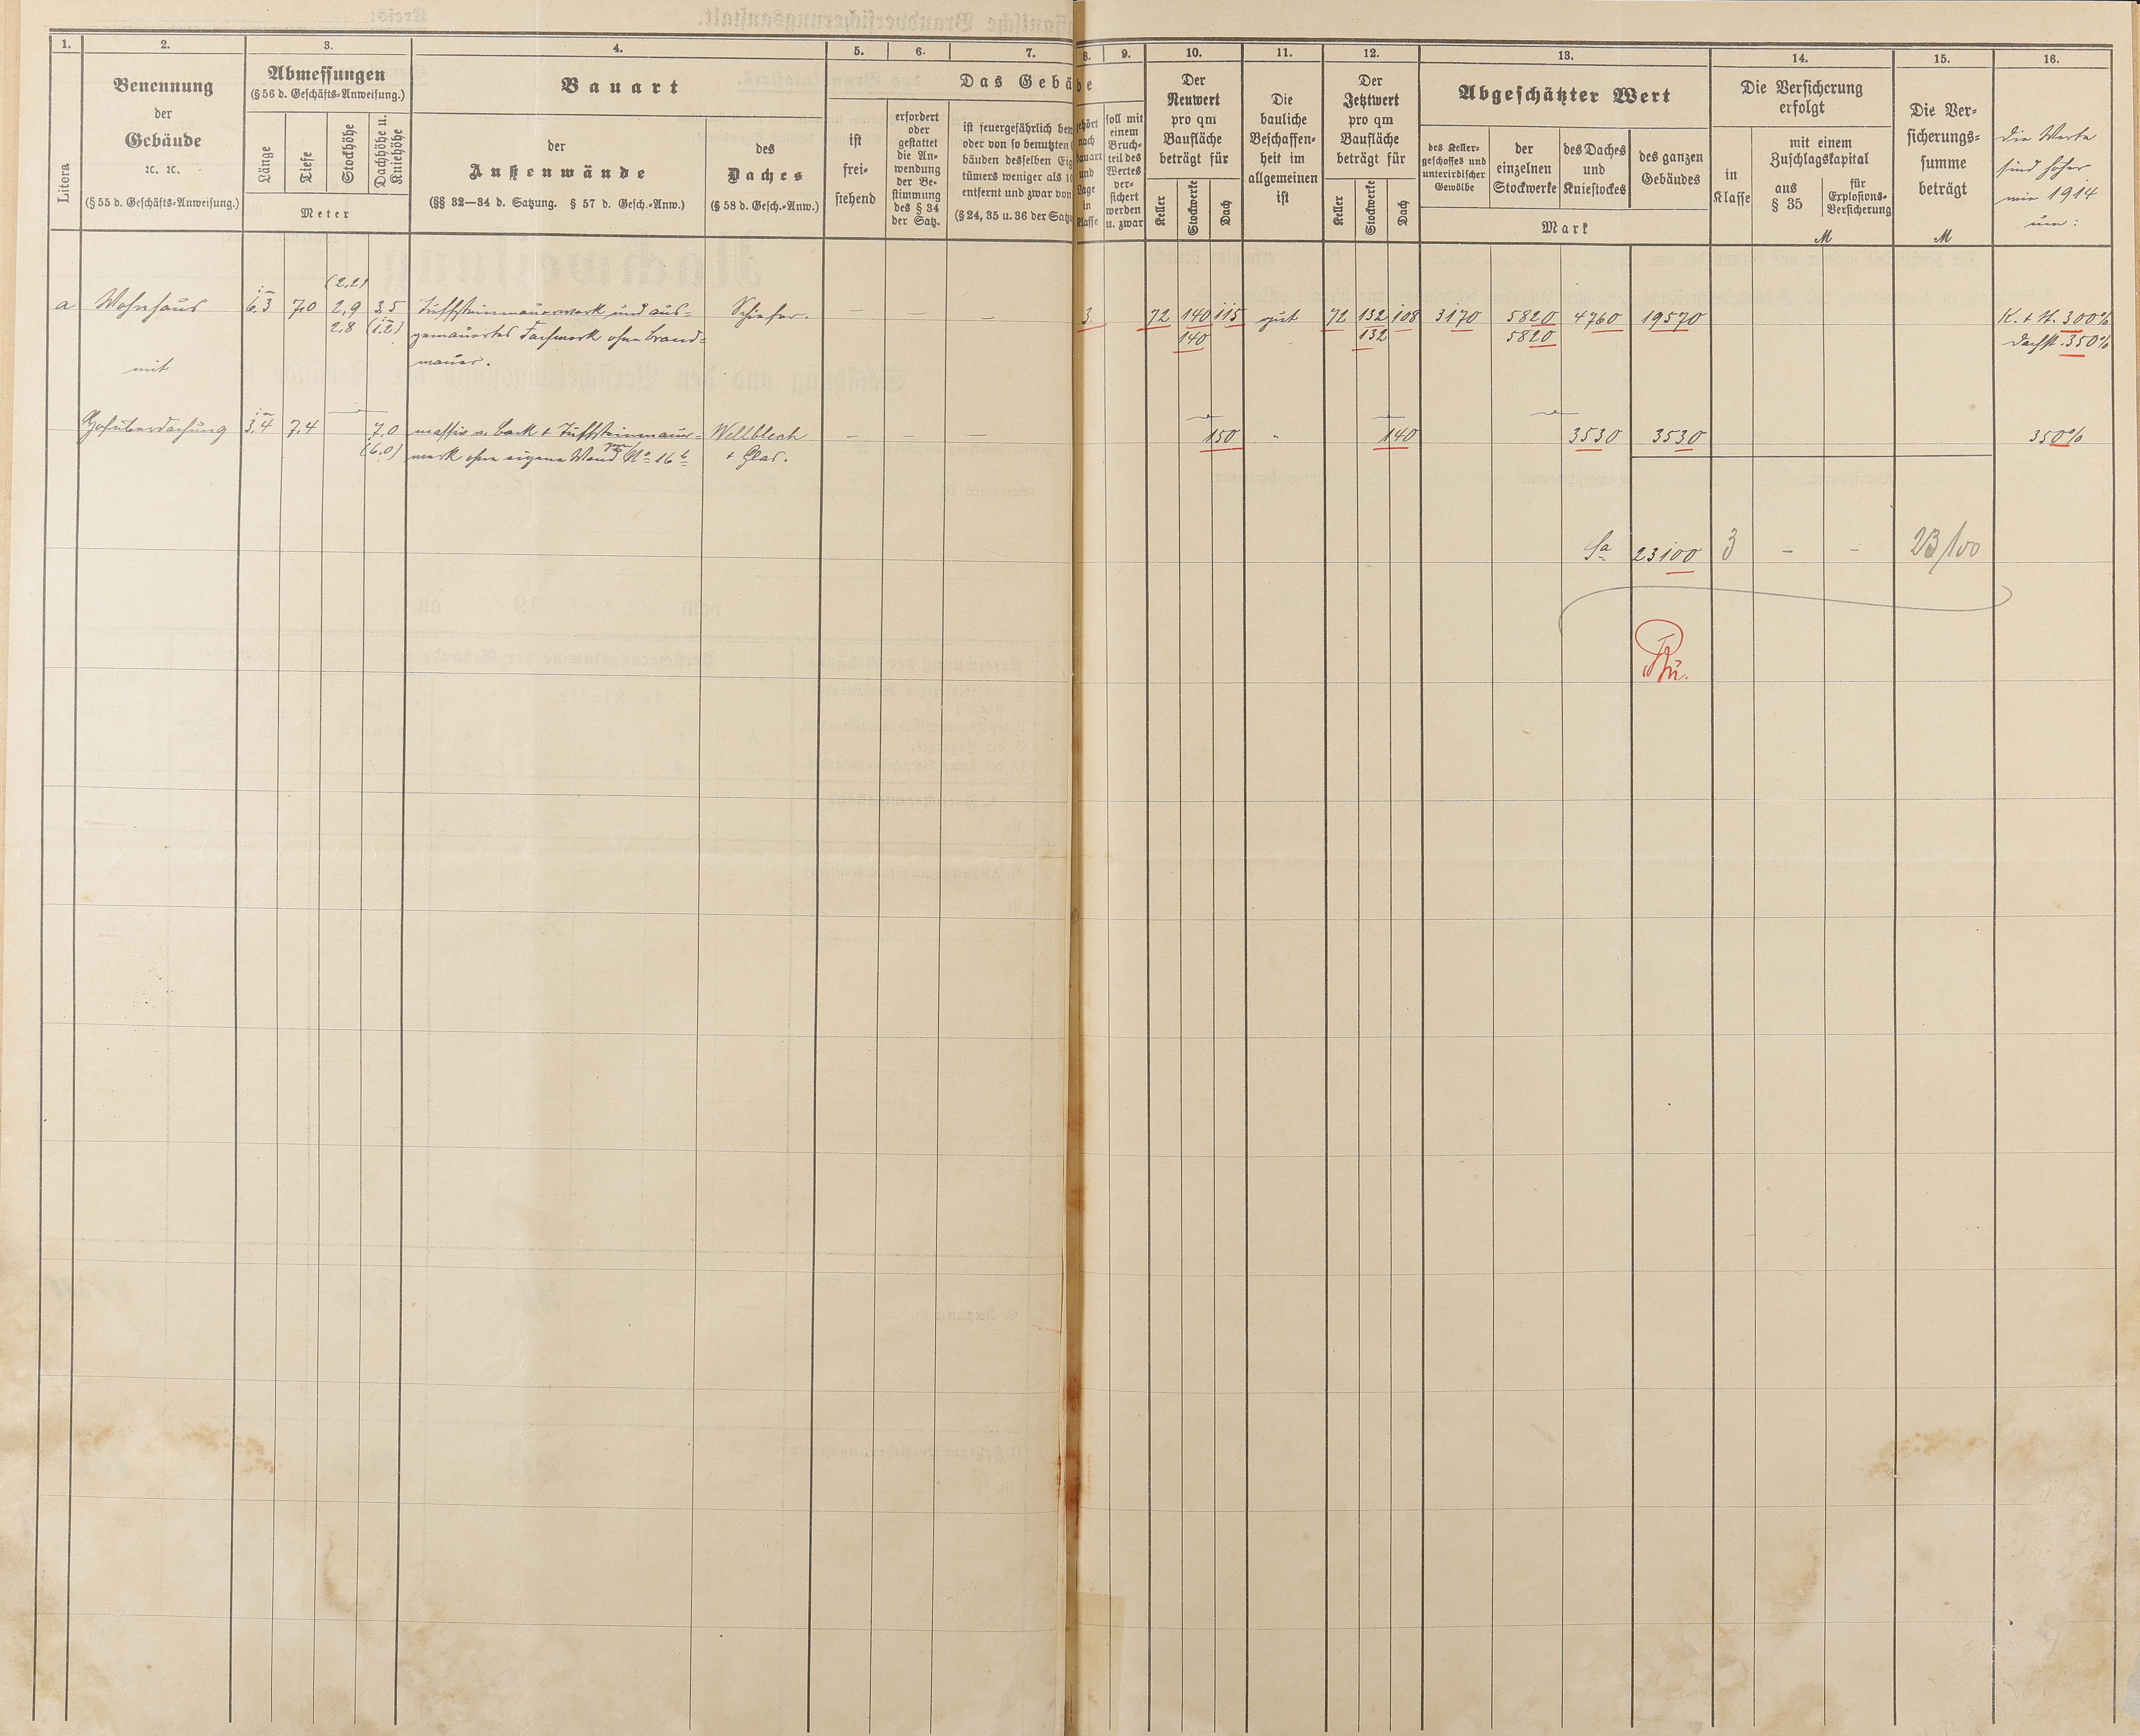 1.
2.
3.
4.
5.
6.
7.
8.
9.
10.
11.
12.
13.
14.
15.
16.
Litera
Benennung
der
Gebäude
ꝛc. ꝛc.
(§ 55 d. Geschäfts-Anweisung.)
Abmessungen
(§ 56 d. Geschäfts-Anweisung.)
Länge
Tiefe
Stockhöhe
Dachhöhe u.
Kniehöhe
Meter
Bauart
der
Außenwände
(§§ 32—34 d. Satzung. § 57 d. Gesch.-Anw.)
des
Daches
(§ 58 d. Gesch.-Anw.)
Das Gebäude
ist
frei-
stehend
erfordert
oder
gestattet
die An-
wendung
der Be-
stimmung
des § 34
der Satz.
ist feuergefährlich ben
oder von so benutzten
bänden desselben Eig
tümers weniger als 10
entfernt und zwar von
(§ 24, 35 u. 36 der Satz
ehört
nach
Bauart
und
Lage
in
Klasse
soll mit
einem
Bruch-
teil des
Wertes
ver-
sichert
werden
u. zwar
Der
Neuwert
pro qm
Baufläche
beträgt für
Keller
Stockwerke
Dach
Die
bauliche
Beschaffen-
heit im
allgemeinen
ist
Der
Jetztwert
pro qm
Baufläche
beträgt für
Keller
Stockwerke
Dach
Abgeschätzter Wert
des Keller-
geschosses und
unterirdischer
Gewölbe
der
einzelnen
Stockwerke
des Daches
und
Kniestockes
des ganzen
Gebäudes
Mark
Die Versicherung
erfolgt
in
Klasse
mit einem
Zuschlagskapital
aus
§ 35
für
Explosions-
Versicherung
M
Die Ver-
sicherungs-
summe
beträgt
M
Die Werte
sind höher
wie 1914
um:
a Wohnhaus 6,3 7,0 (2,2) 2,9 2,8 3,5 (1,2) Tuffsteinmauerwerk und aus-
gemauertes Fachwerk ohne Brand-
mauer.
Schiefer. — — — 3. 72 140 115 gut 72 132 108 3170 5820 4760 19570 K. + St. 300%
140 132 5820 Dachst. 350%
mit
Hofüberdachung 3,4 7,4 7,0 (6,0) massiv v. Back + Tuffsteinmauer-
werk ohne eigene Wand No 16 b
Wellblech
+ Glas.
— — — 150 " 140 3530 3530 350%
Sa 23100 3 – – 23100